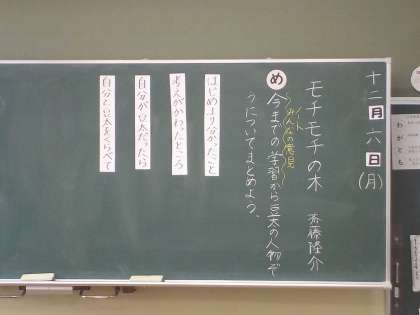 十二月六日(月)
モチモチの木 斎藤隆介
め
ノート
みんなの意見
今までの学習から豆太の人物ぞ
うについてまとめよう。
はじめより分かったこと
考えがかわったところ
自分が豆太だったら
自分と豆太をくらべて